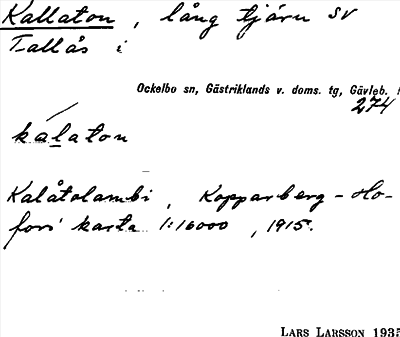 Kallaton, lång tjärn SV
Tallås i
Ockelbo sn, Gästriklands v. doms. tg, Gävleb. l
274
kálaton
Kalåtolambi, Kopparberg-Ho-
fors karta 1:16000, 1915.
LARS LARSSON 1935